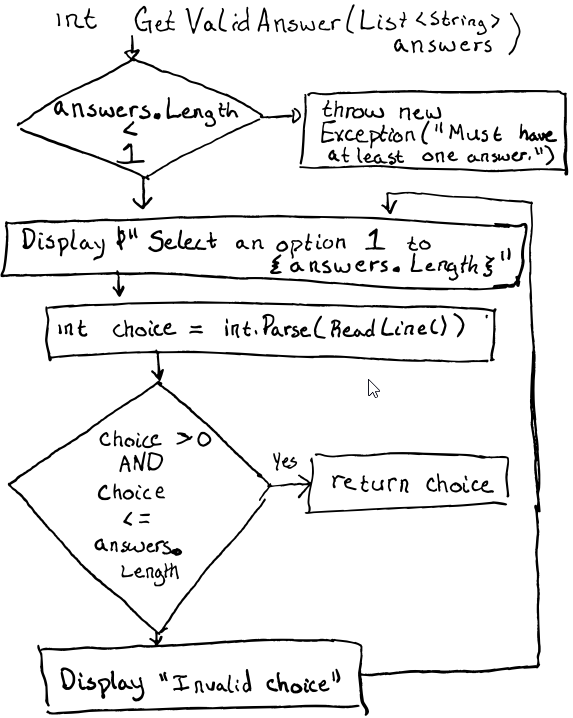 int GetValidAnswer(List<string>
answers)
answers.Length
<
1
throw new
Exception("Must have
at least one answer.")
Display $" Select an option 1 to
{answers.Length}"
int choice = int.Parse(ReadLine())
choice >0
AND
choice
<=
answers.
Length
Yes
return choice
Display "Invalid choice"